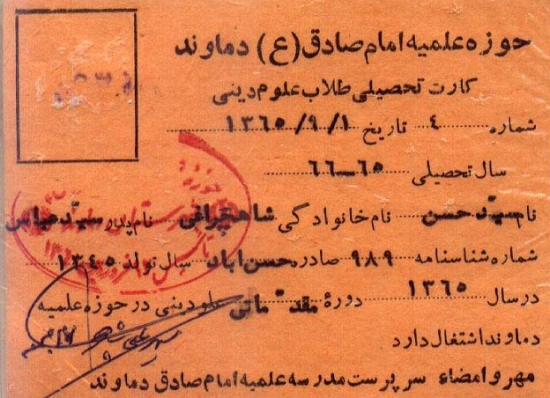 حوزه علمیه امام صادق (ع) دماوند
کارت تحصیلی طلاب علوم دینی
شماره ۴ تاریخ ۱۳۶۵/۹/۱
سال تحصیلی ۶۵-۶۶
نام سیّد حسن نام خانوادگی شاهچراغی نام پدر سیّد عباس
شماره شناسنامه ۹۸۹ صادره حسن آباد سال تولد ۱۳۴۵
در سال ۱۳۶۵ دورهٔ مقدّماتی علوم دینی در حوزه علمیه
دماوند اشتغال دارد
مهر و امضاء سرپرست مدرسه علمیه امام صادق دماوند